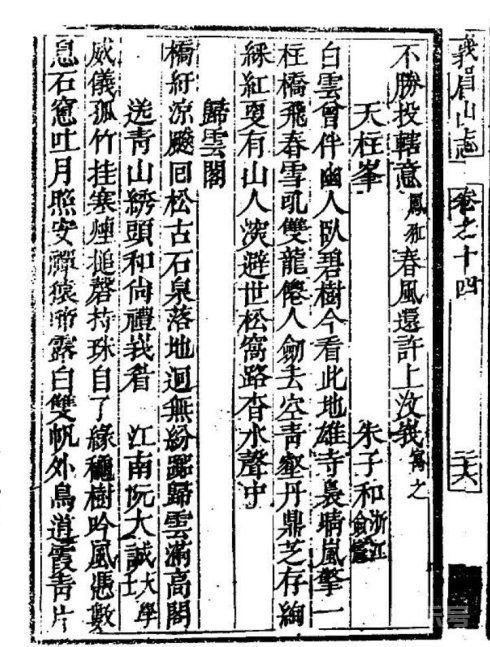 峩眉山志 卷之十四
不勝投轄意 春風還許上汶峩 寓之
天柱峯 朱子和 浙江僉憲
白雲曾伴幽人臥碧樹今看此地雄寺裊晴嵐擎一
柱橋飛春雪吼雙龍僊人劒去空青壑丹鼎芝存絢
綵紅更有山人演避世松窩路杳水聲中
歸雲閣
橋紆涼颷回松古石泉落地迴無紛躑歸雲滿高閣
送青山綉頭和尚禮峩眉 江南阮大誠 大學
威儀孤竹挂寒煙搥磬持珠自了緣穐樹吟風慿數
息石窻吐月照安禪猿啼露白雙帆外鳥道霞青片